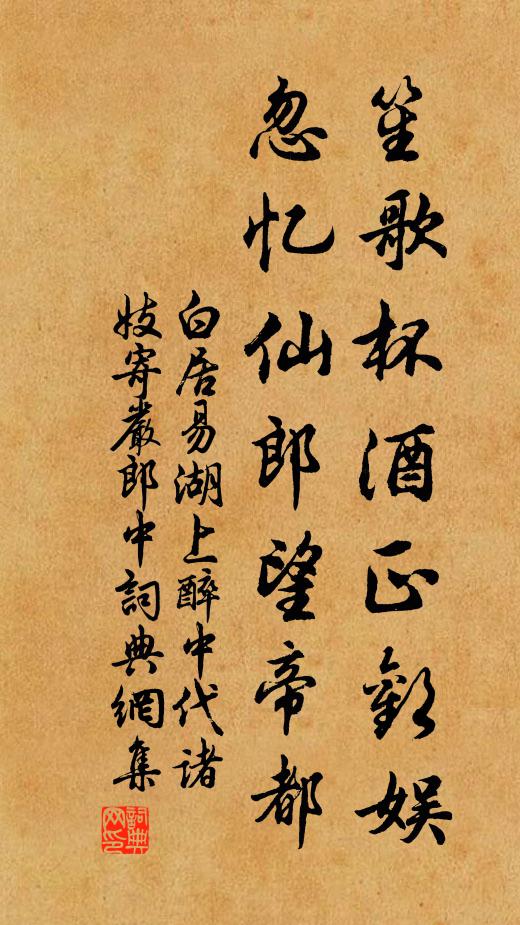 笙歌杯酒正歡娱
忽忆仙郎望帝都
白居易湖上醉中代诸
妓寄嚴郎中詞典網集
詞典网印